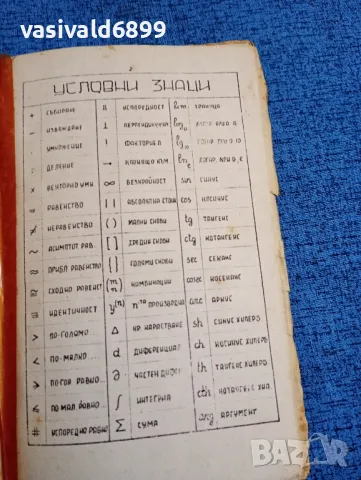 vasivald6899
УСЛОВНИ ЗНАЦИ
+ СЪБИРАНЕ || ИСПОРЕДНОСТ lim ГРАНИЦА
- ИЗВАЖДАНЕ ⊥
УМНОЖЕНИЕ ! ФАКТОРИЕЛ
: ДЕЛЕНИЕ →
× ВЕКТОРНО УМН ∞ БЕЗКРАЙНОСТ sin СИНУС
= РАВЕНСТВО | | АБСОЛЮТНА СТОЙ cos КОСИНУС
≠ НЕРАВЕНСТВО ( ) МАЛКИ СКОБИ tg ТАНГЕНС
~ АСИМПТОТ РАВ. [ ] СРЕДНИ СКОБИ ctg КОТАНГЕНС
≈ ПРИБЛ РАВЕНСТВО { } ГОЛЕМИ СКОБИ sec СЕКАНС
≅ СХОДНО РАВЕНСТ (m n) КОМБИНАЦИИ cosec КОСЕКАНС
≡ ИДЕНТИЧНОСТ y(n) n та ПРОИЗВОДНА arc АРКУС
> ПО-ГОЛЯМО Δ КР. НАРАСТВАНЕ sh СИНУС ХИПЕРБ
< ПО-МАЛКО... d ДИФЕРЕНЦИАЛ ch КОСИНУС ХИПЕРБ
≥ ∂ ЧАСТЕН ДИФЕР th ТАНГЕНС ХИПЕРБ
≤ ПО МАЛ РАВНО... ∫ ИНТЕГРАЛ cth КОТАНГЕНС ХИП.
# ИСПОРЕДНО РАВНО Σ СУМА arg АРГУМЕНТ
BAZAR